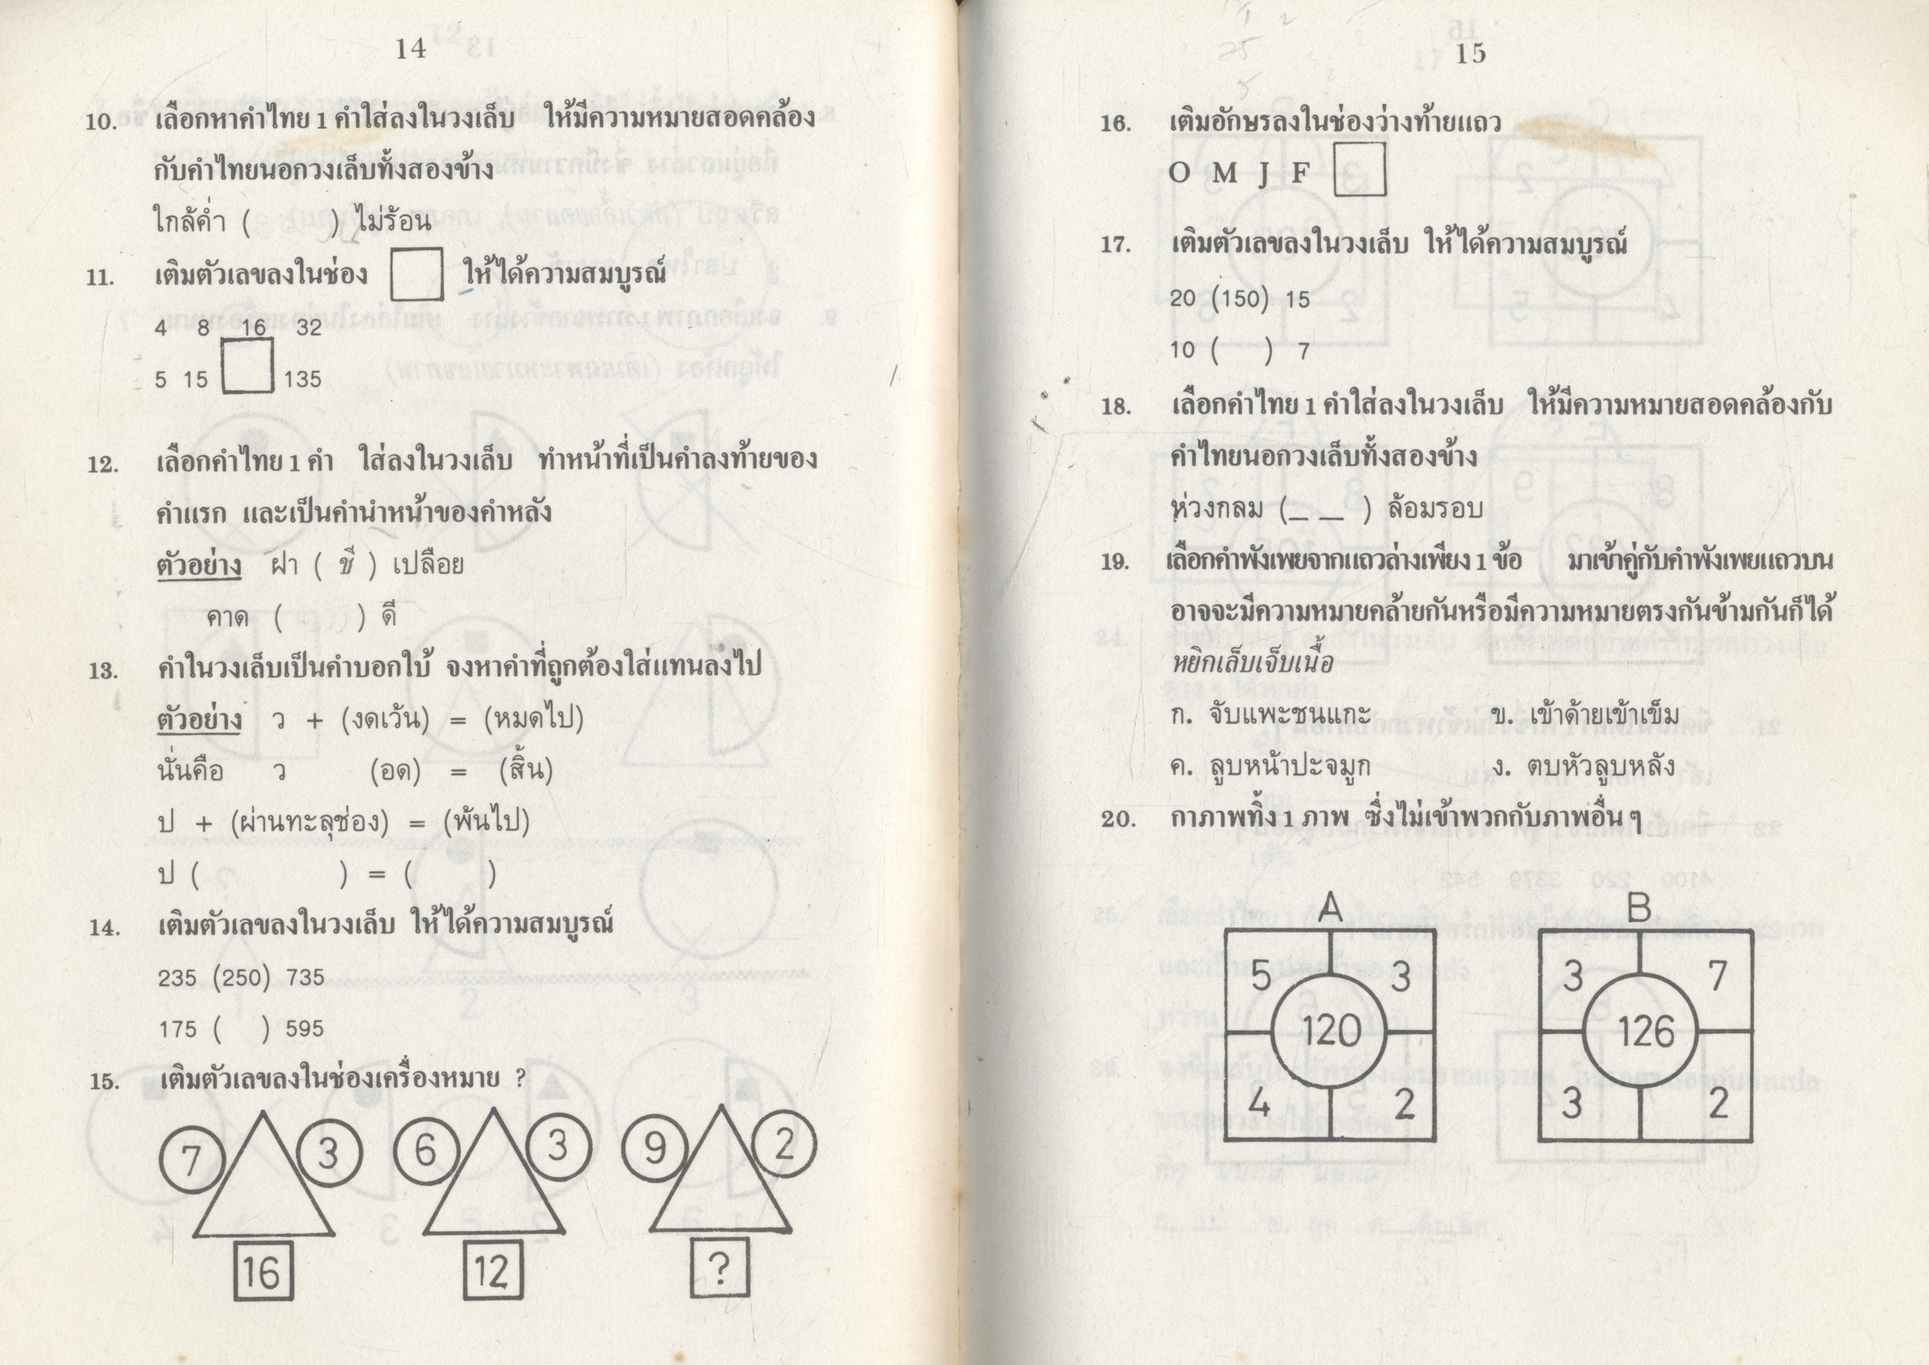 14
10. เลือกหาคำไทย 1 คำใส่ลงในวงเล็บ ให้มีความหมายสอดคล้อง
กับคำไทยนอกวงเล็บทั้งสองข้าง
ใกล้ค่ำ ( ) ไม่ร้อน
11. เติมตัวเลขลงในช่อง ให้ได้ความสมบูรณ์
4 8 16 32
5 15 135
12. เลือกคำไทย 1 คำ ใส่ลงในวงเล็บ ทำหน้าที่เป็นคำลงท้ายของ
คำแรก และเป็นคำนำหน้าของคำหลัง
ตัวอย่าง ฝา ( ชี ) เปลือย
คาด ( ) ดี
13. คำในวงเล็บเป็นคำบอกใบ้ จงหาคำที่ถูกต้องใส่แทนลงไป
ตัวอย่าง ว + (งดเว้น) = (หมดไป)
นั่นคือ ว (อด) = (สิ้น)
ป + (ผ่านทะลุช่อง) = (พ้นไป)
ป ( ) = ( )
14. เติมตัวเลขลงในวงเล็บ ให้ได้ความสมบูรณ์
235 (250) 735
175 ( ) 595
15. เติมตัวเลขลงในช่องเครื่องหมาย ?
7 3 6 3 9 2
16 12 ?
15
16. เติมอักษรลงในช่องว่างท้ายแถว
O M J F
17. เติมตัวเลขลงในวงเล็บ ให้ได้ความสมบูรณ์
20 (150) 15
10 ( ) 7
18. เลือกคำไทย 1 คำใส่ลงในวงเล็บ ให้มีความหมายสอดคล้องกับ
คำไทยนอกวงเล็บทั้งสองข้าง
ห่วงกลม (_ _ ) ล้อมรอบ
19. เลือกคำพังเพยจากแถวล่างเพียง 1 ข้อ มาเข้าคู่กับคำพังเพยแถวบน
อาจจะมีความหมายคล้ายกันหรือมีความหมายตรงกันข้ามกันก็ได้
หยิกเล็บเจ็บเนื้อ
ก. จับแพะชนแกะ ข. เข้าด้ายเข้าเข็ม
ค. ลูบหน้าปะจมูก ง. ตบหัวลูบหลัง
20. กาภาพทิ้ง 1 ภาพ ซึ่งไม่เข้าพวกกับภาพอื่น ๆ
A B
5 3 3 7
120 126
4 2 3 2